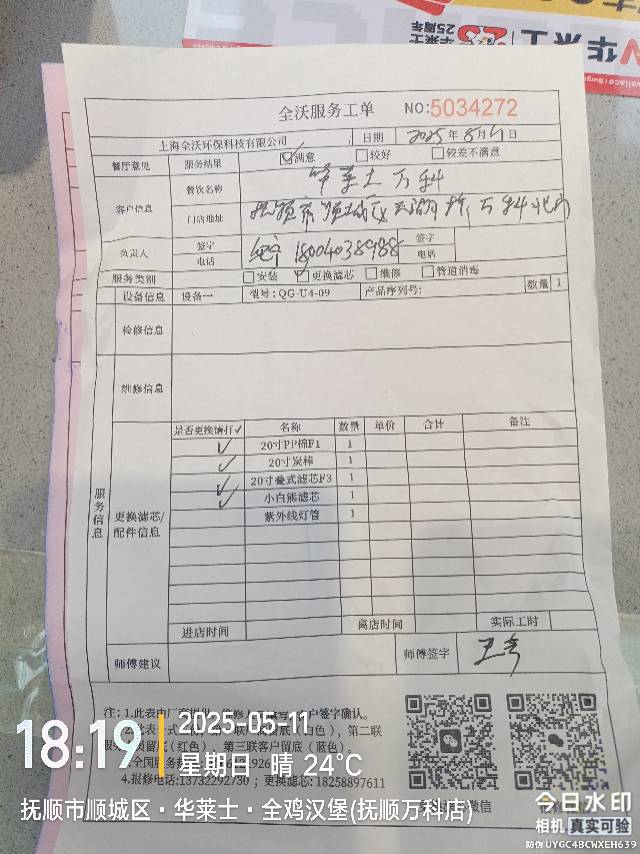 华莱士
25周年
全沃服务工单 NO:5034272
上海全沃环保科技有限公司 日期 2025年5月11日
餐厅意见 服务结果 ☑满意 □较好 □较差不满意
客户信息 餐饮名称 华莱士万科
门店地址 抚顺市顺城区
负责人 签字 电话 18004038988 签字 电话
服务类别 □安装 ☑更换滤芯 □维修 □管道消毒
设备信息 设备一 型号:QG-U4-09 产品序列号: 数量 1
检修信息
维修信息
服务信息
更换滤芯/配件信息
是否更换请打✓ 名称 数量 单价 合计 备注
✓ 20寸PP棉F1 1
✓ 20寸炭棒 1
✓ 20寸叠式滤芯F3 1
✓ 小白熊滤芯 1
紫外线灯管 1
进店时间 离店时间 实际工时
师傅建议 师傅签字
注:1.此表由厂家提供
客户签字确认。
白色),第二联
留底(红色)、第三联客户留底(蓝色)。
4.报修电话:13732292730;更换滤芯:18258897611
18:19
2025-05-11
星期日·晴 24℃
抚顺市顺城区·华莱士·全鸡汉堡(抚顺万科店)
今日水印
相机 真实可验
防伪 UYGC4BCWXEH639